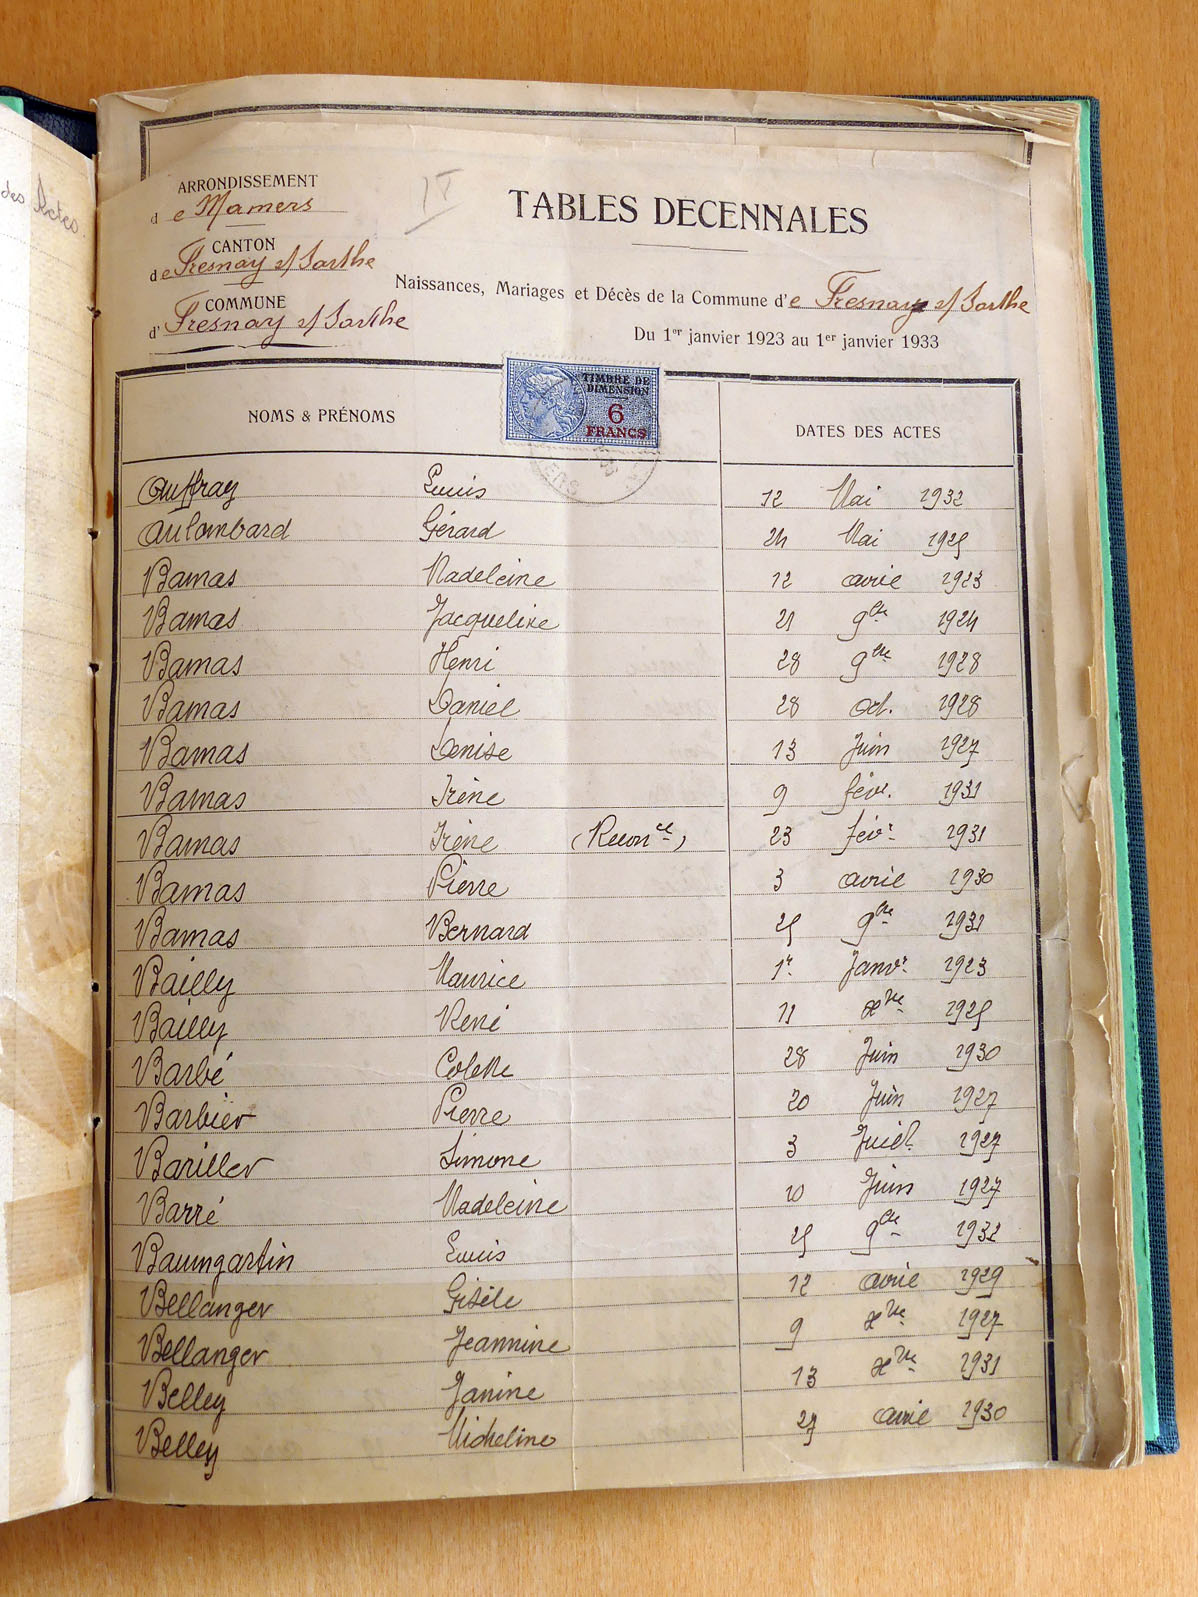 des Actes.
IT
ARRONDISSEMENT
de Mamers
CANTON
de Fresnay s/ Sarthe
COMMUNE
d' Fresnay s/ Sarthe
TABLES DECENNALES
Naissances, Mariages et Décès de la Commune d'e Fresnay s/ Sarthe
Du 1er janvier 1923 au 1er janvier 1933
TIMBRE DE DIMENSION
6
FRANCS
NOMS & PRÉNOMS DATES DES ACTES
Auffray Louis 12 Mai 1932
Aulombard Gérard 24 Mai 1925
Bamas Madeleine 12 avril 1923
Bamas Jacqueline 21 9bre 1924
Bamas Henri 28 9bre 1928
Bamas Daniel 28 oct. 1928
Bamas Denise 13 Juin 1927
Bamas Irène 9 févr. 1931
Bamas Irène (Reconce) 23 févr 1931
Bamas Pierre 3 avril 1930
Bamas Bernard 25 9bre 1932
Bailly Maurice 1r Janvr 1923
Bailly René 11 xbre 1925
Barbé Colette 28 Juin 1930
Barbier Pierre 20 Juin 1927
Bariller Simone 3 Juiel. 1927
Barré Madeleine 10 Juin 1927
Baumgartin Louis 25 9bre 1932
Bellanger Gisèle 12 avril 1929
Bellanger Jeannine 9 xbre 1927
Belley Janine 13 xbre 1931
Belley Micheline 27 avril 1930